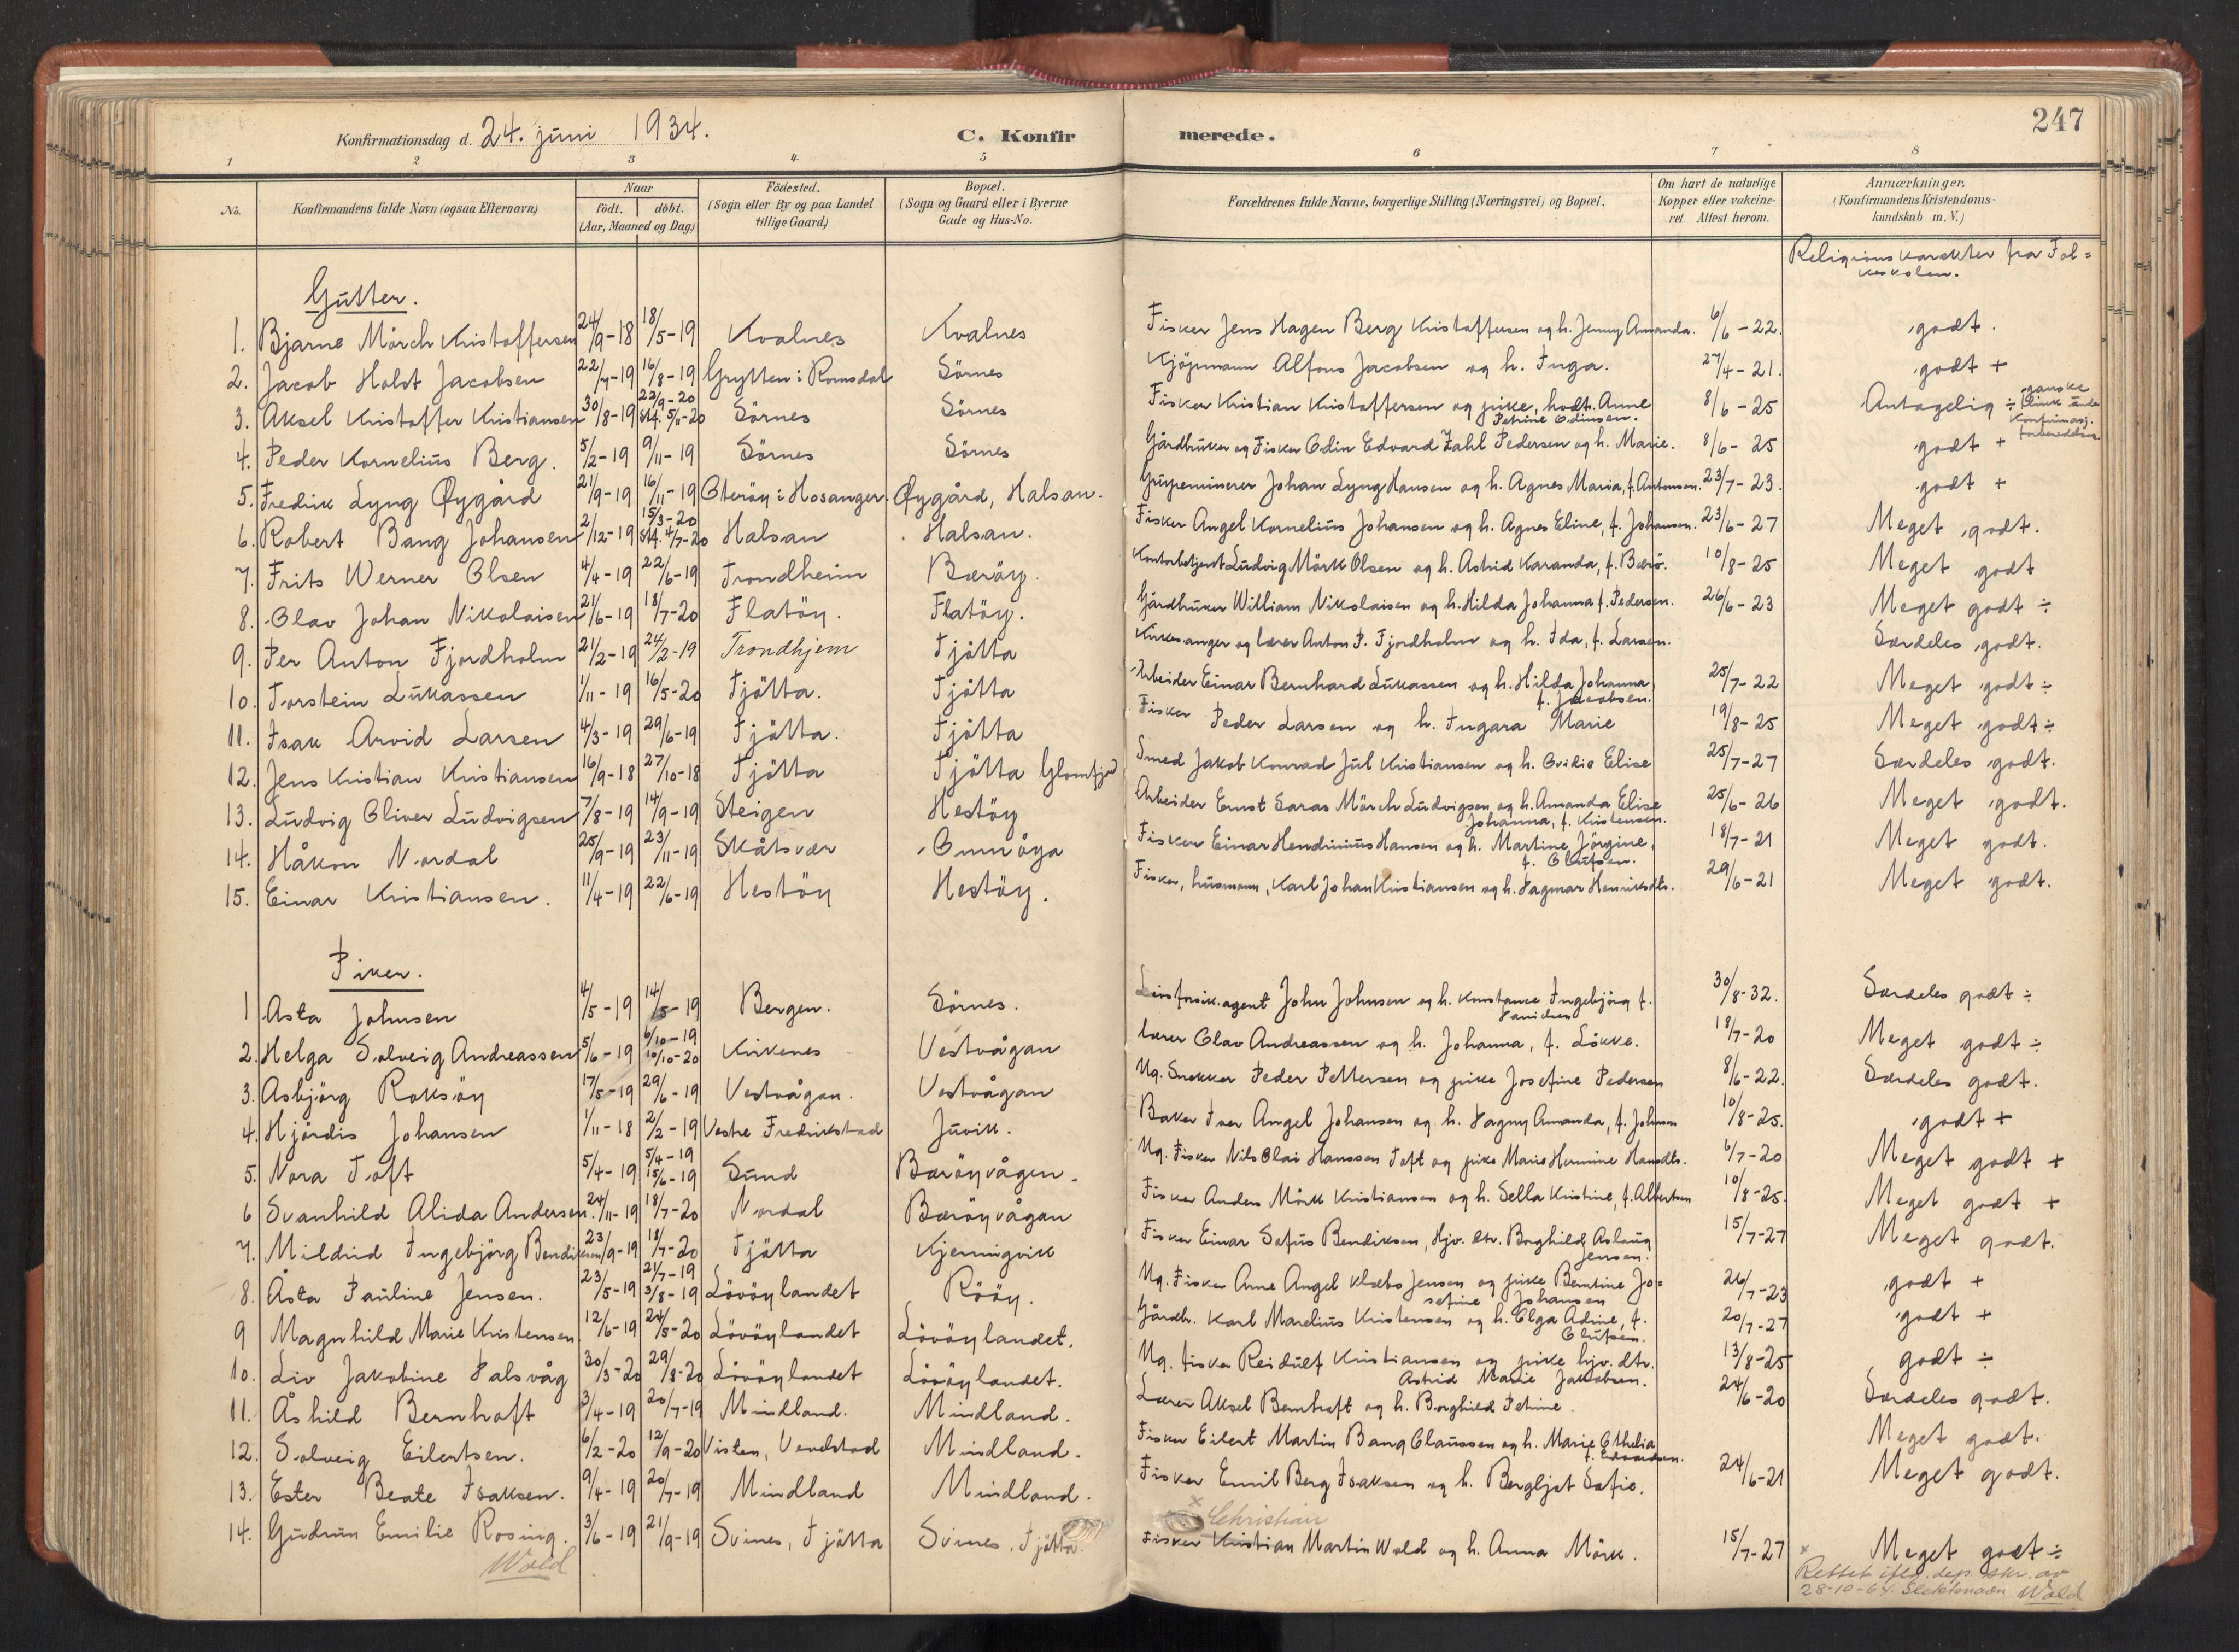 247
Konfirmationsdag d. 24. juni 1934. C. Konfirmerede.
1 2 3 4. 5 6 7 8
No. Konfirmandens fulde Navn (ogsaa Efternavn) Naar födt. döbt. (Aar, Maaned og Dag) Födested. (Sogn eller By og paa Landet tillige Gaard) Bopæl. (Sogn og Gaard eller i Byerne Gade og Hus-No. Forældrenes fulde Navne, borgerlige Stilling (Næringsvei) og Bopæl. Om havt de naturlige Kopper eller vakcineret. Attest herom. Anmærkninger. (Konfirmandens Kristendomskundskab m. V.)
Religionskarakter fra Folkeskolen.
Gutter.
1. Bjarne Mörch Kristoffersen 24/9-18 18/5-19 Kvalnes Kvalnes Fisker Jens Hagen Berg Kristoffersen og h. Jenny Amanda. 6/6-22. godt.
2. Jacob Holst Jacobsen 22/7-19 16/8-19 Grytten i Romsdal Sörnes Kjöpmann Alfons Jacobsen og h. Inga. 27/4-21. godt +
3. Aksel Kristoffer Kristiansen 30/8-19 22/9-20 stf. 5/11-20 Sörnes Sörnes Fisker Kristian Kristoffersen og pike, hvdt. Anne Petrine Odinsen. 8/6-25 Antagelig ÷ ganske flink under konfirmasj. forberedelsen.
4. Peder Kornelius Berg. 5/2-19 9/11-19 Sörnes Sörnes Gårdbruker og Fisker Odin Edvard Zahl Pedersen og h. Marie. 8/6-25 godt +
5. Fredrik Lyng Øygård 21/9-19 16/11-19 Osteröy i Hosanger. Øygård, Halsan. Grupeminerer Johan Lyng Hansen og h. Agnes Maria, f. Antonsen. 23/7-23. godt +
6. Robert Bang Johansen 2/12-19 15/3-20 stf. 4/7-20 Halsan Halsan. Fisker Angel Kornelius Johansen og h. Agnes Eline, f. Johansen. 23/6-27 Meget godt.
7. Frits Werner Olsen 4/4-19 22/6-19 Trondheim Bæröy. Kontorbetjent Ludvig Mörk Olsen og h. Astrid Karanda, f. Bærö. 10/8-25 Meget godt
8. Olav Johan Nikolaisen 21/6-19 18/7-20 Flatöy. Flatöy. Gårdbruker William Nikolaisen og h. Hilda Johanna f. Pedersen. 26/6-23 Meget godt ÷
9. Per Anton Fjordholm 21/2-19 24/2-19 Trondhjem Tjötta Kirkesanger og lærer Anton P. Fjordholm og h. Ida, f. Larsen. Særdeles godt.
10. Torstein Lukassen 1/11-19 16/5-20 Tjötta. Tjötta Arbeider Einar Bernhard Lukassen og h. Hilda Johanna, f. Jacobsen. 25/7-22 Meget godt ÷
11. Isak Arvid Larsen 4/3-19 29/6-19 Tjötta. Tjötta Fisker Peder Larsen og h. Ingara Marie 19/8-25 Meget godt ÷
12. Jens Kristian Kristiansen 16/9-18 27/10-18 Tjötta Tjötta Glomfjord Smed Jakob Konrad Jul Kristiansen og h. Ovidie Elise 25/7-27 Særdeles godt.
13. Ludvig Oliver Ludvigsen 7/8-19 14/9-19 Steigen Hestöy Arbeider Ernst Saras Mörch Ludvigsen og h. Amanda Elise Johanna, f. Kristensen. 25/6-26 Meget godt.
14. Håkon Nordal 25/9-19 23/11-19 Skåtsvær Gunnöya Fisker Einar Hendinius Hansen og h. Martine Jörgine, f. Olufsen. 18/7-21 Meget godt.
15. Einar Kristiansen. 11/4-19 22/6-19 Hestöy Hestöy. Fisker, husmann, Karl Johan Kristiansen og h. Dagmar Henriksdtr. 29/6-21 Meget godt.
Piker.
1 Asta Johnsen 4/5-19 14/5-19 Bergen. Sörnes. Livsforsik.agent John Johnsen og h. Konstance Ingebjörg f. Danielsen 30/8-32. Særdeles godt ÷
2. Helga Solveig Andreassen 5/6-19 6/10-19 10/10-20 Kirkenes Vestvågan Lærer Olav Andreassen og h. Johanna, f. Lökke. 18/7-20 Meget godt ÷
3. Asbjörg Roksöy 17/5-19 29/6-19 Vestvågan. Vestvågan Ug. Snekker Peder Pettersen og pike Josefine Pedersen 8/6-22. Særdeles godt.
4. Hjördis Johansen 1/11-18 2/2-19 Vestre Fredrikstad Juvik. Baker Iver Angel Johansen og h. Dagny Amanda, f. Johnsen 10/8-25. godt +
5. Nora Toft 5/4-19 5/4-19 15/6-19 Sund Bæröyvågen. Ug. Fisker Nils Olai Hanssen Toft og pike Marie Hermine Hansdtr. 6/7-20 Meget godt +
6 Svanhild Alida Andersen. 24/11-19 18/7-20 Nordal Bæröyvågan Fisker Anders Mörk Kristiansen og h. Sella Kristine, f. Albertsen 10/8-25. Meget godt +
7. Mildrid Ingebjörg Bendiksen 23/9-19 18/7-20 Tjötta Kjerringvik Fisker Einar Sofus Bendiksen, Hjv. dtr. Borghild Aslaug Jensen. 15/7-27 Meget godt.
8. Åsta Pauline Jensen. 23/5-19 21/7-19 3/8-19 Lövöylandet Rööy. Ug. Fisker Arne Angel Klæbo Jensen og pike Berntine Josefine Johansen 26/7-23 godt +
9 Magnhild Marie Kristensen 12/6-19 24/5-20 Lövöylandet Lövöylandet. Gårdb. Karl Marelius Kristensen og h. Olga Adine, f. Olufsen. 20/7-27 godt +
10. Liv Jakobine Dalsvåg 30/3-20 29/8-20 Lövöylandet Lövöylandet. Ug. fisker Reidulf Kristiansen og pike hjv. dtr. Astrid Marie Jakobsen. 13/8-25 godt ÷
11. Åshild Bernhoft 3/4-19 20/7-19 Mindland. Mindland. Lærer Aksel Bernhoft og h. Borghild Petrine. 24/6-20 Særdeles godt.
12. Solveig Eilertsen. 6/2-20 12/9-20 Visten, Vevelstad Mindland. Fisker Eilert Martin Bang Claussen og h. Marie Othelia f. Edvardsen. Meget godt.
13. Ester Beate Isaksen. 9/4-19 20/7-19 Mindland Mindland. Fisker Emil Berg Isaksen og h. Bergljot Sofie. 24/6-21 Meget godt.
x Christian
14. Gudrun Emilie Rosing. 3/6-19 21/9-19 Svines, Tjötta Svines, Tjötta. Fisker Kristian Martin Wold og h. Anna Mörk. 15/7-27 Meget godt ÷
Wold x Rettet iflg. dep. skr. av
28-10-64. Slektsnavn Wold